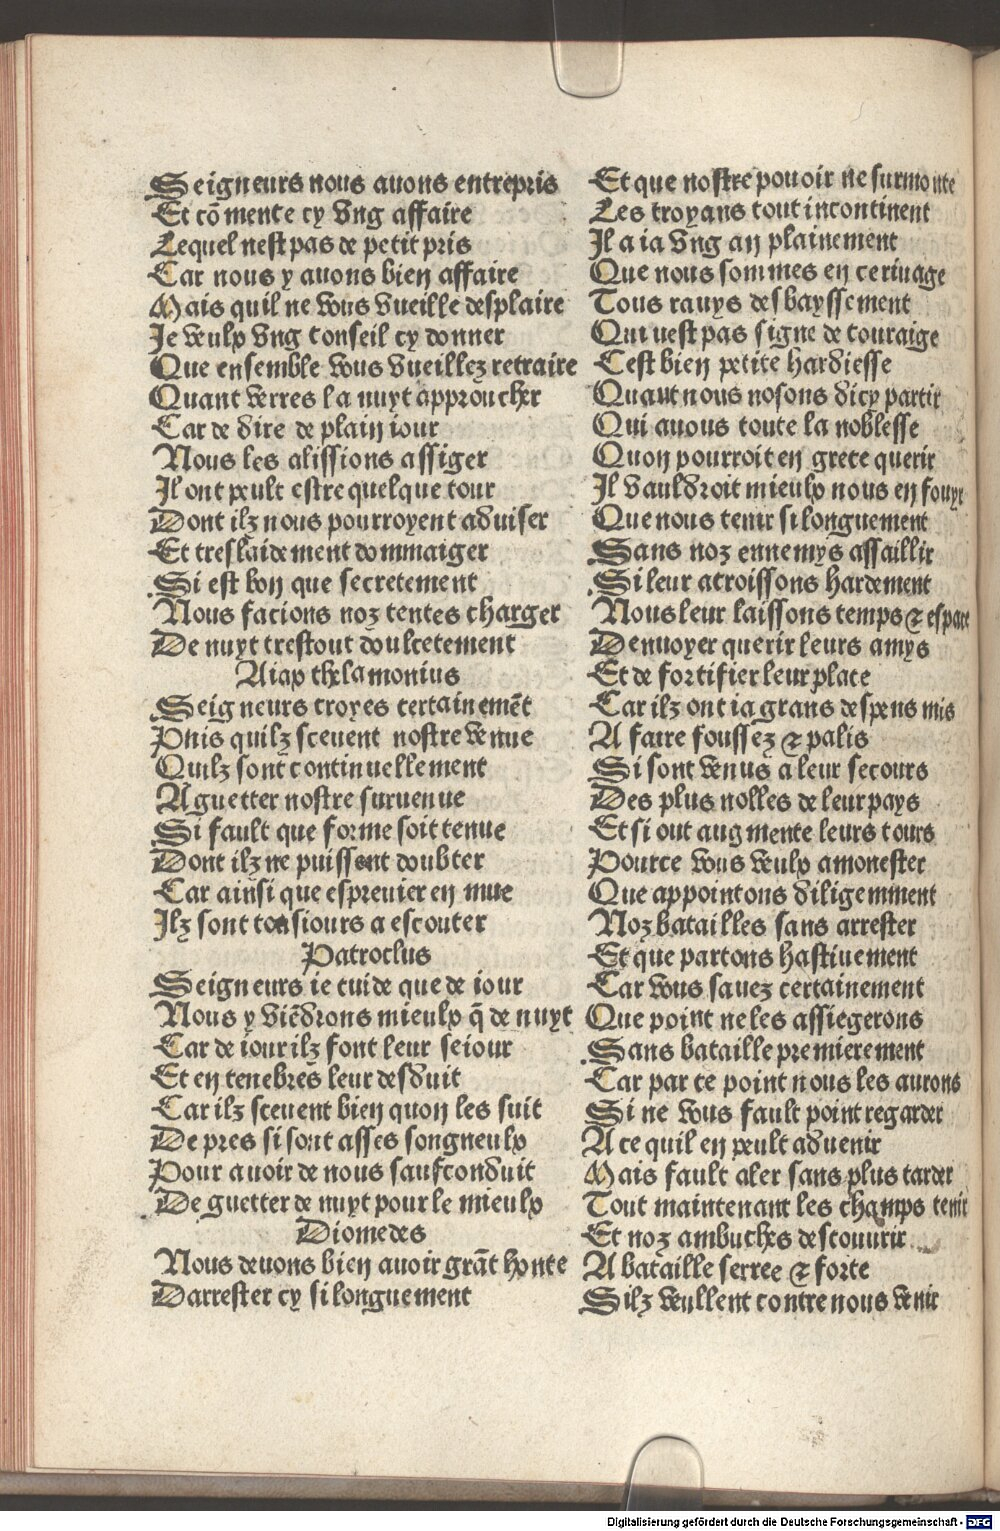 Seigneurs nous auons entrepris
Et cõmente cy vng affaire
Lequel nest pas de petit pris
Car nous y auons bien affaire
Mais quil ne vous vueille desplaire
Je veulx vng conseil cy donner
Que ensemble vous vueillez retraire
Quant verres la nuyt approucher
Car de dire de plain iour
Nous les alissions assiger
Il ont peult estre quelque tour
Dont ilz nous pourroyent aduiser
Et treslaidement dommaiger
Si est bon que secretement
Nous facions noz tentes charger
De nuyt trestout doulcetement
Aiax thelamonius
Seigneurs croyes certainemẽt
Pnis quilz sceuent nostre venue
Quilz sont continuellement
A guetter nostre suruenue
Si fault que forme soit tenue
Dont ilz ne puissent doubter
Car ainsi que espreuier en mue
Ilz sont tousiours a escouter
Patroclus
Seigneurs ie cuide que de iour
Nous y viẽdrons mieulx q̃ de nuyt
Car de iour ilz font leur seiour
Et en tenebres leur desduit
Car ilz sceuent bien quon les suit
De pres si sont asses songneulx
Pour auoir de nous saufconduit
De guetter de nuyt pour le mieulx
Diomedes
Nous deuons bien auoir grãt honte
Darrester cy si longuement
Et que nostre pouoir ne surmonte
Les troyans tout incontinent
Il a ia vng an plainement
Que nous sommes en ce riuage
Tous rauys desbayssement
Qui nest pas signe de couraige
Cest bien petite hardiesse
Quant nous nosons dicy partir
Qui auons toute la noblesse
Quon pourroit en grece querir
Il vauldroit mieulx nous en fouyr
Que nous tenir si longuement
Sans noz ennemys assaillir
Si leur acroissons hardement
Nous leur laissons temps & espace
Denuoyer querir leurs amys
Et de fortifier leur place
Car ilz ont ia grans despens mis
A faire foussez & palis
Si sont venus a leur secours
Des plus nolles de leur pays
Et si out augmente leurs tours
Pource vous veulx amonester
Que appointons diligemment
Noz batailles sans arrester
Et que partons hastiuement
Car vous sauez certainement
Que point ne les assiegerons
Sans bataille premierement
Car par ce point nous les aurons
Si ne vous fault point regarder
A ce quil en peult aduenir
Mais fault aler sans plus tarder
Tout maintenant les champs tenir
Et noz ambuches descouurir
A bataille serree & forte
Silz veullent contre nous venir
Digitalisierung gefördert durch die Deutsche Forschungsgemeinschaft - DFG